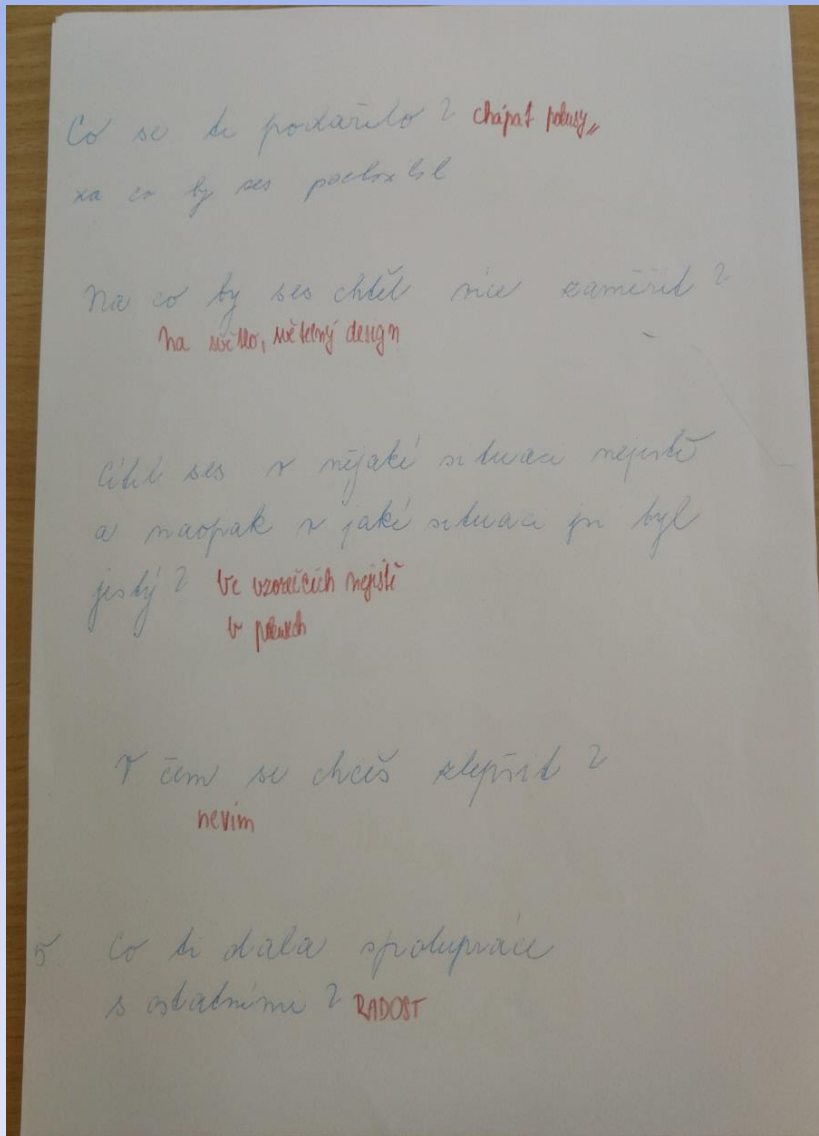 Co se ti podařilo? chápat pokusy,,
za co by ses pochválil
Na co by ses chtěl více zaměřit?
Na světlo, světelný design
Cítil ses v nějaké situaci nejistě
a naopak v jaké situaci jsi byl
jistý? Ve vzorečcích nejistě
v pokusech
V čem se chceš zlepšit?
nevím
5 Co ti dala spolupráce
s ostatními? RADOST